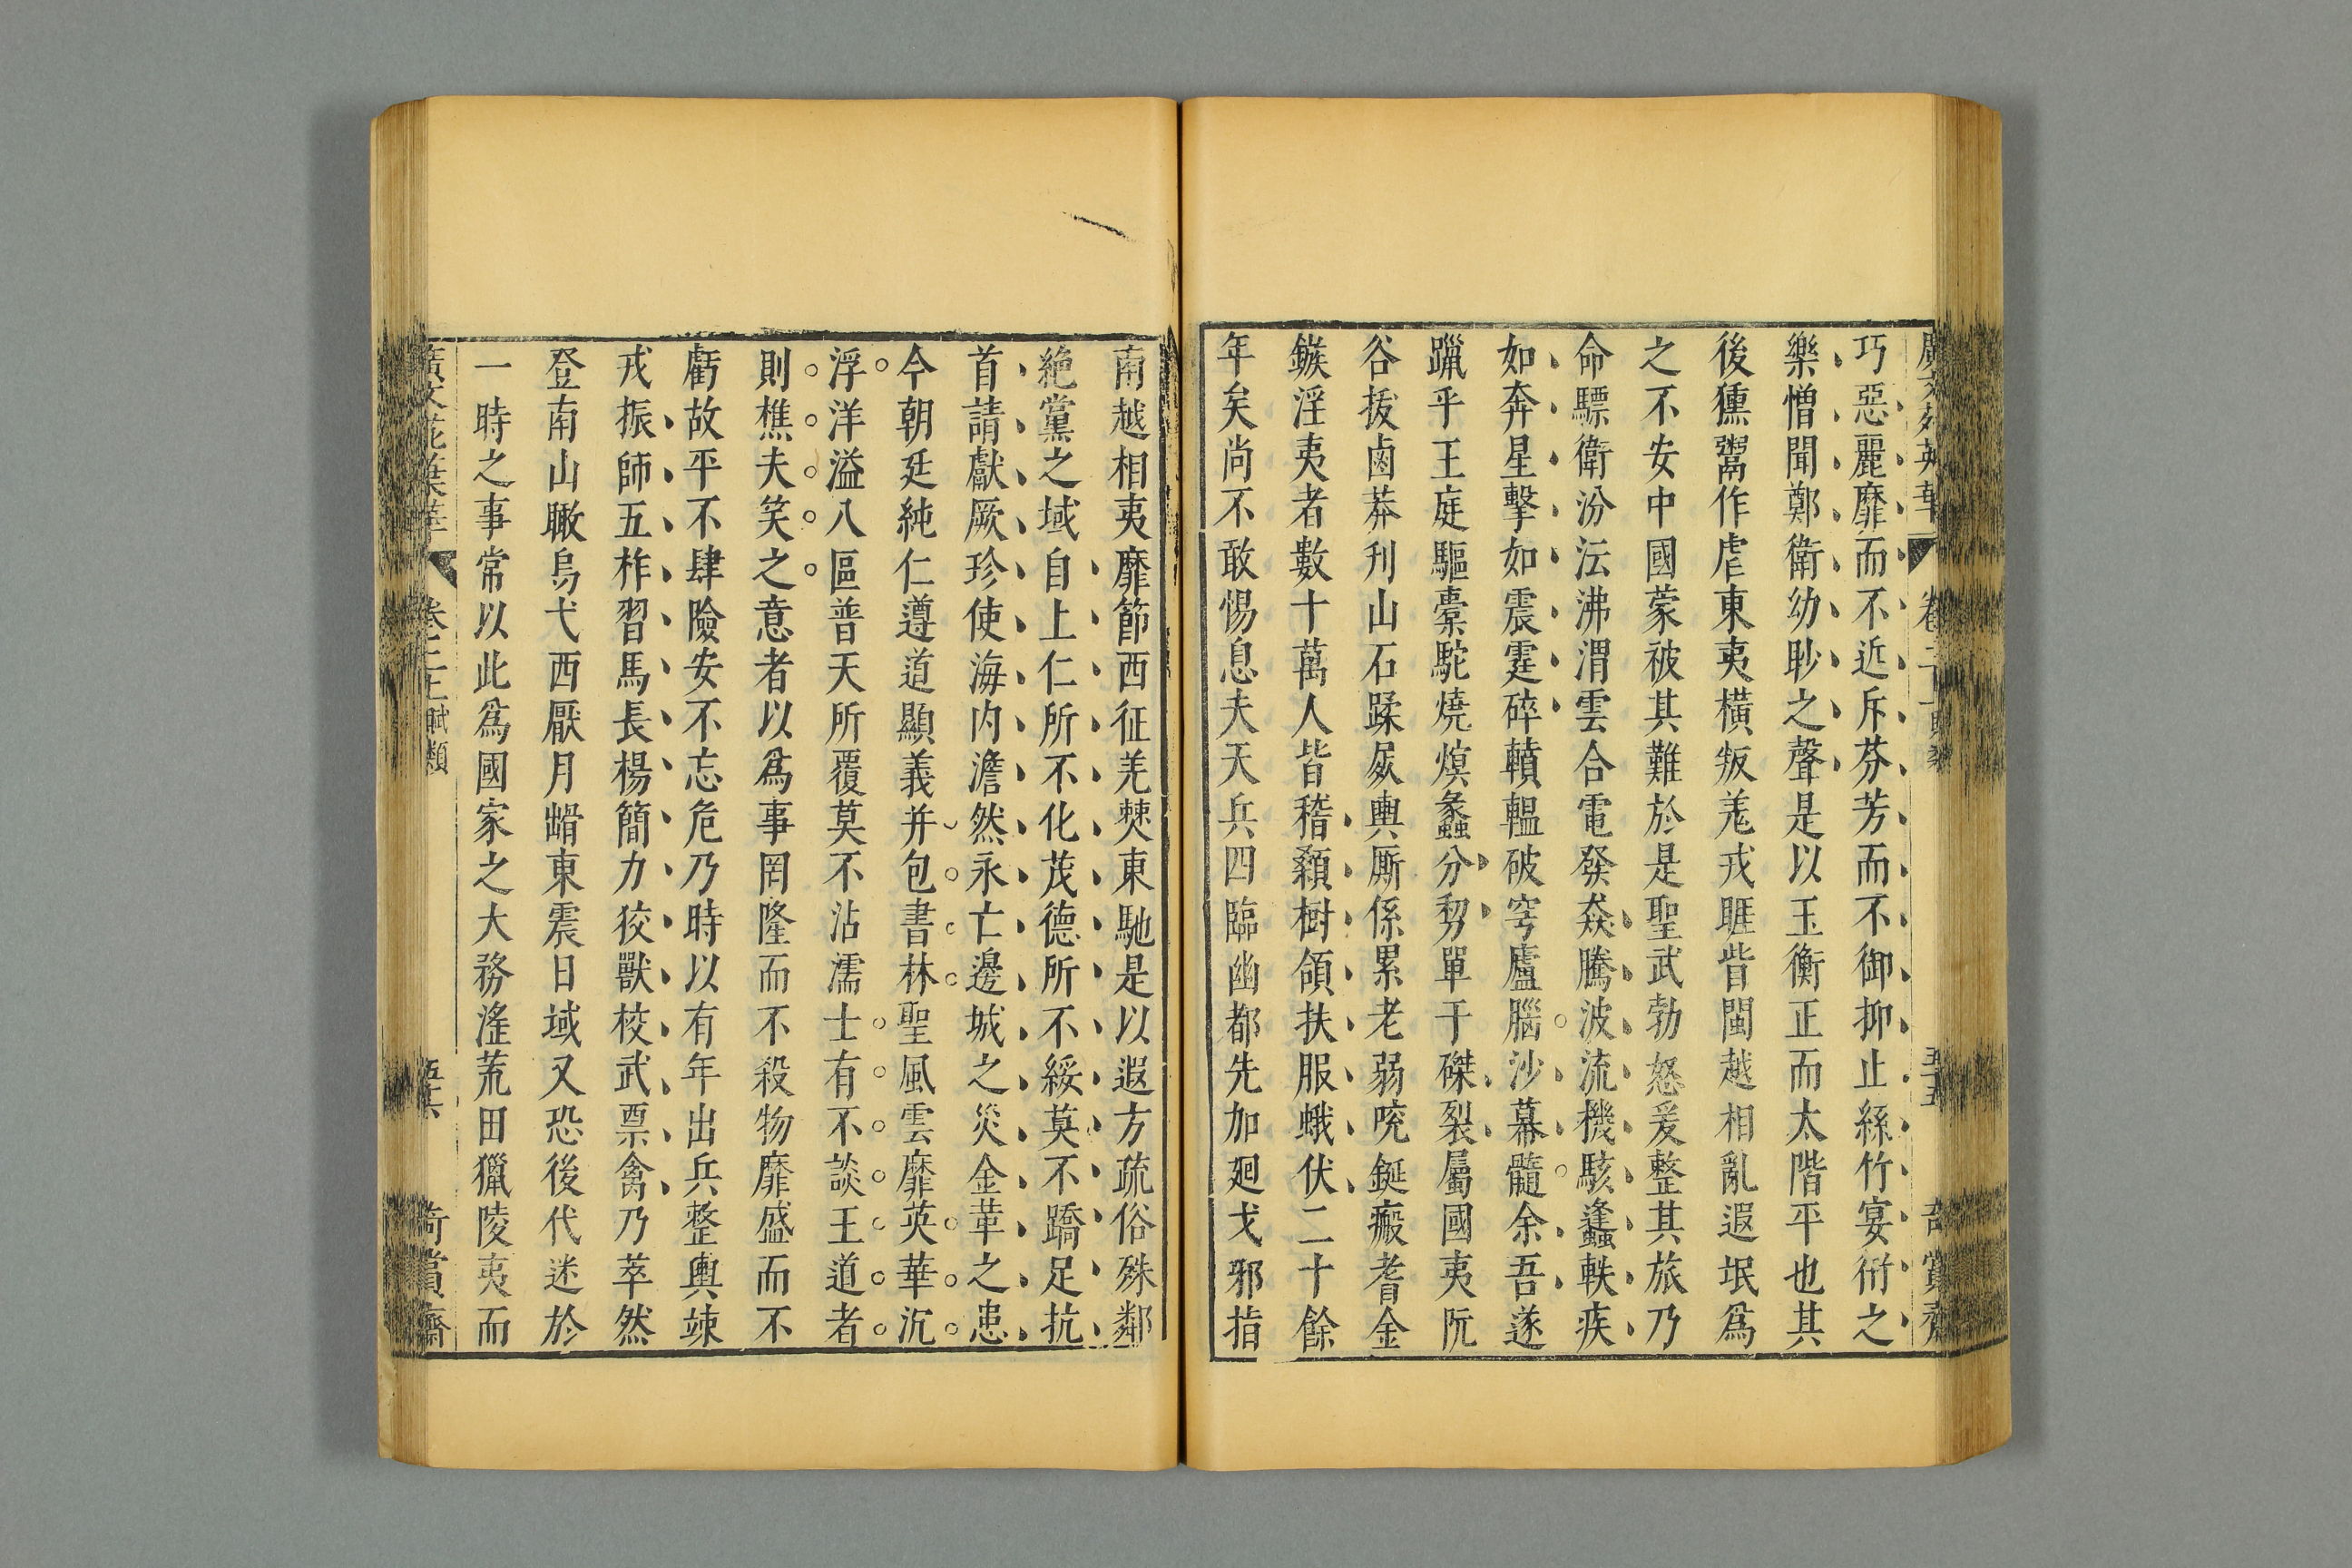 巧惡麗靡而不近斥芬芳而不御抑止絲竹宴衎之
樂憎聞鄭衛幼眇之聲是以玉衡正而太階平也其
後獯鬻作虐東夷橫叛羌戎睚眥閩越相亂遐氓爲
之不安中國蒙被其難於是聖武勃怒爰整其旅乃
命驃衛汾沄沸渭雲合電發猋騰波流機駭蠭軼疾
如奔星擊如震霆碎轒轀破穹廬腦沙幕髓余吾遂
躐乎王庭驅橐駝燒熐蠡分剓單于磔裂屬國夷阬
谷拔鹵莽刋山石蹂屍輿厮係累老弱吮鋋瘢耆金
鏃淫夷者數十萬人皆稽顙樹頷扶服蛾伏二十餘
年矣尚不敢惕息夫天兵四臨幽都先加廻戈邪指
南越相夷靡節西征羌僰東馳是以遐方疏俗殊鄰
絶黨之域自上仁所不化茂德所不綏莫不蹻足抗
首請獻厥珍使海内澹然永亡邊城之災金革之患
今朝廷純仁遵道顯義并包書林聖風雲靡英華沉
浮洋溢八區普天所覆莫不沾濡士有不談王道者
則樵夫笑之意者以爲事罔隆而不殺物靡盛而不
虧故平不肆險安不忘危乃時以有年出兵整輿竦
戎振師五柞習馬長楊簡力狡獸校武票禽乃萃然
登南山瞰烏弋西厭月𡿖東震日域又恐後代迷於
一時之事常以此爲國家之大務淫荒田獵陵夷而
廣文苑英華 卷二十一 賦類 五六 奇賞齋